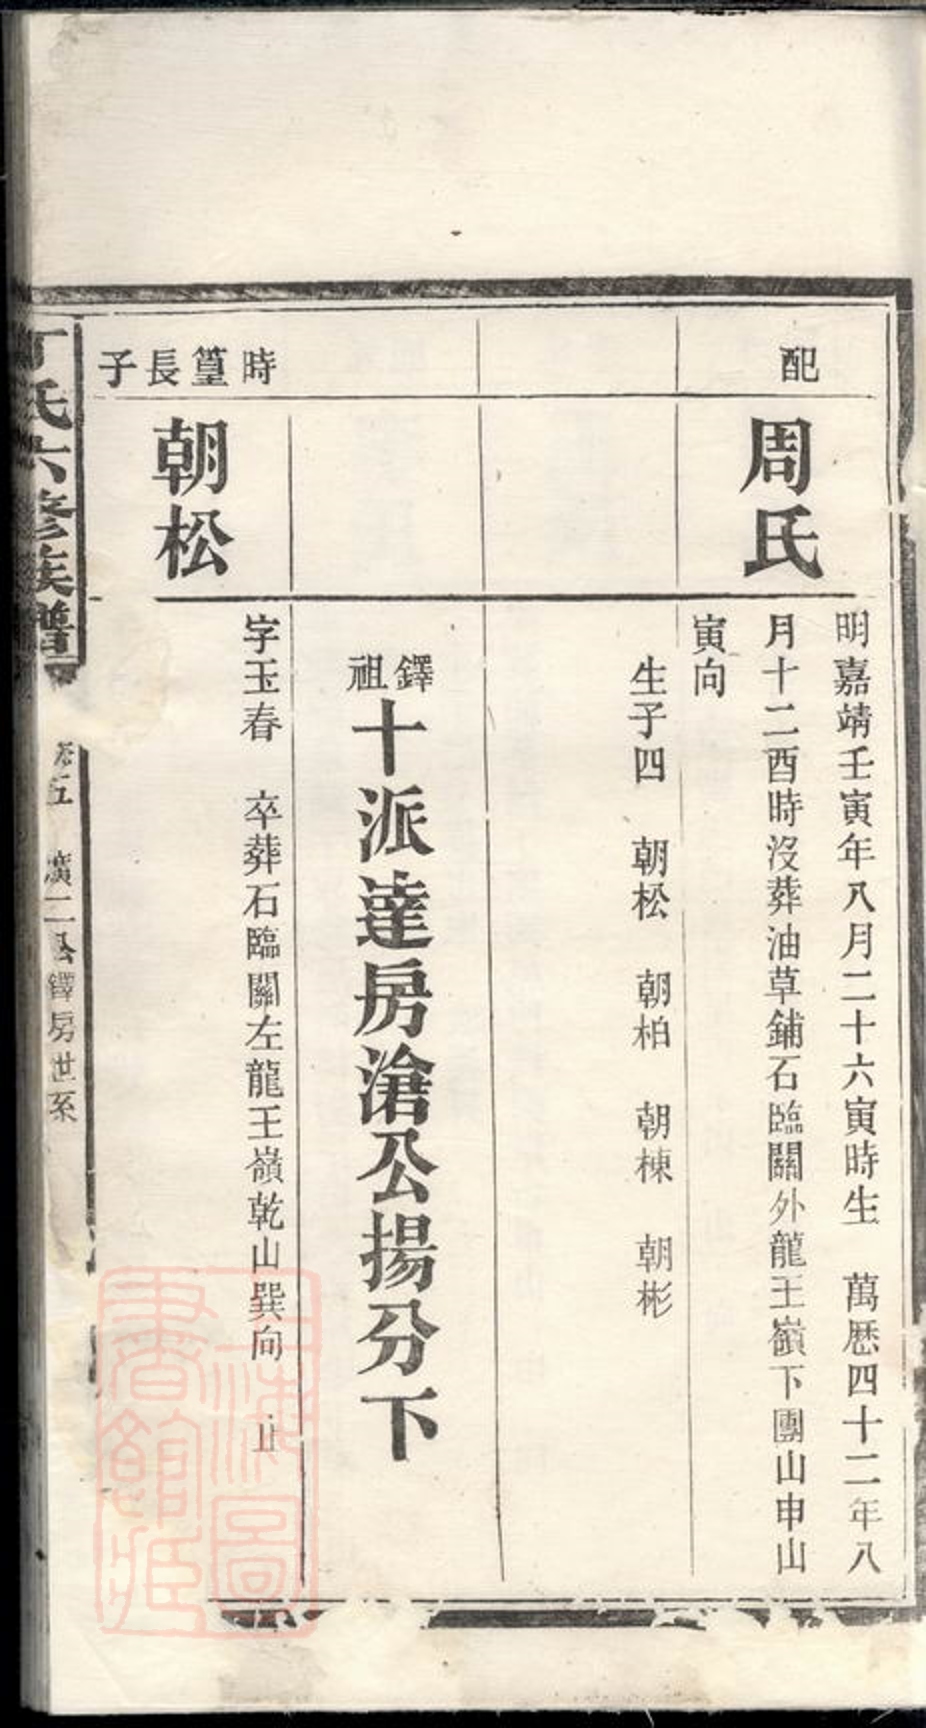 配
周氏
明嘉靖壬寅年八月二十六寅時生　萬歷四十二年八
月十二酉時沒葬油草鋪石臨關外龍王嶺下團山申山
寅向
生子四　朝松　朝柏　朝棟　朝彬
鐸祖十派達房滄公揚分下
時篁長子
朝松
字玉春　卒葬石臨關左龍王嶺乾山巽向　止
丁氏六修族譜
卷五　濱二公鐸房世系
上海圖書館藏